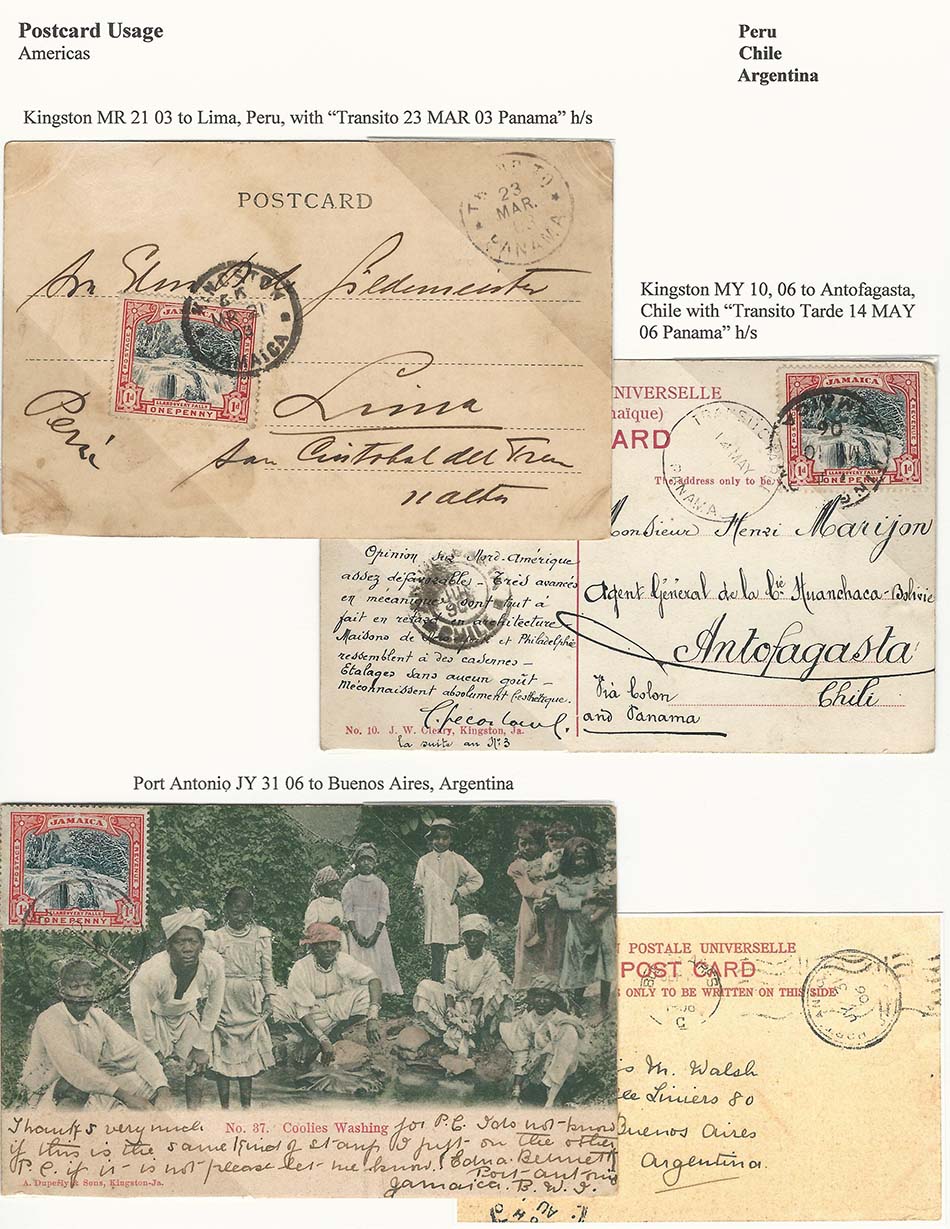 Postcard Usage
Americas
Peru
Chile
Argentina
Kingston MR 21 03 to Lima, Peru, with “Transito 23 MAR 03 Panama” h/s
POSTCARD
TRANSITO
23
MAR.
03
PANAMA
Gildemeister
KINGSTON
MR 21
03
JAMAICA
JAMAICA
POSTAGE
REVENUE
1d
LLANDOVERY FALLS
1d
ONE PENNY
Lima
Perú
San Cristobal del Tren
Kingston MY 10, 06 to Antofagasta,
Chile with “Transito Tarde 14 MAY
06 Panama” h/s
UNIVERSELLE
(aïque)
ARD
The address only to be
14 MAY
PANAMA
JAMAICA
1d
1d
ONE PENNY
Monsieur Henri Marijon
Agent Général de la Cie Huanchaca-Bolivie
Antofagasta
Chili
Via Colon
and Panama
Opinion sur Nord-Amérique
assez défavorable – Très avancés
en mécanique, sont tout à
fait en retard en architecture
Maisons de et Philadelphie
ressemblent à des casernes –
Etalages sans aucun goût –
Méconnaissent absolument l'esthétique.
No. 10. J. W. Cleary, Kingston, Ja.
la suite au No 3
Port Antonio JY 31 06 to Buenos Aires, Argentina
JAMAICA
POSTAGE
REVENUE
1d
LLANDOVERY FALLS
1d
ONE PENNY
No. 37. Coolies Washing
Thanks very much for P.C. I do not know
if this is the same kind of stamp I put on the other
P.C. if it is not please let me know. Edna Bennett
Port Antonio
Jamaica. B. W. I.
A. Duperly & Sons, Kingston-Ja.
N POSTALE UNIVERSELLE
POST CARD
S ONLY TO BE WRITTEN ON THIS SIDE
s M. Walsh
Liniers 80
Buenos Aires
Argentina.